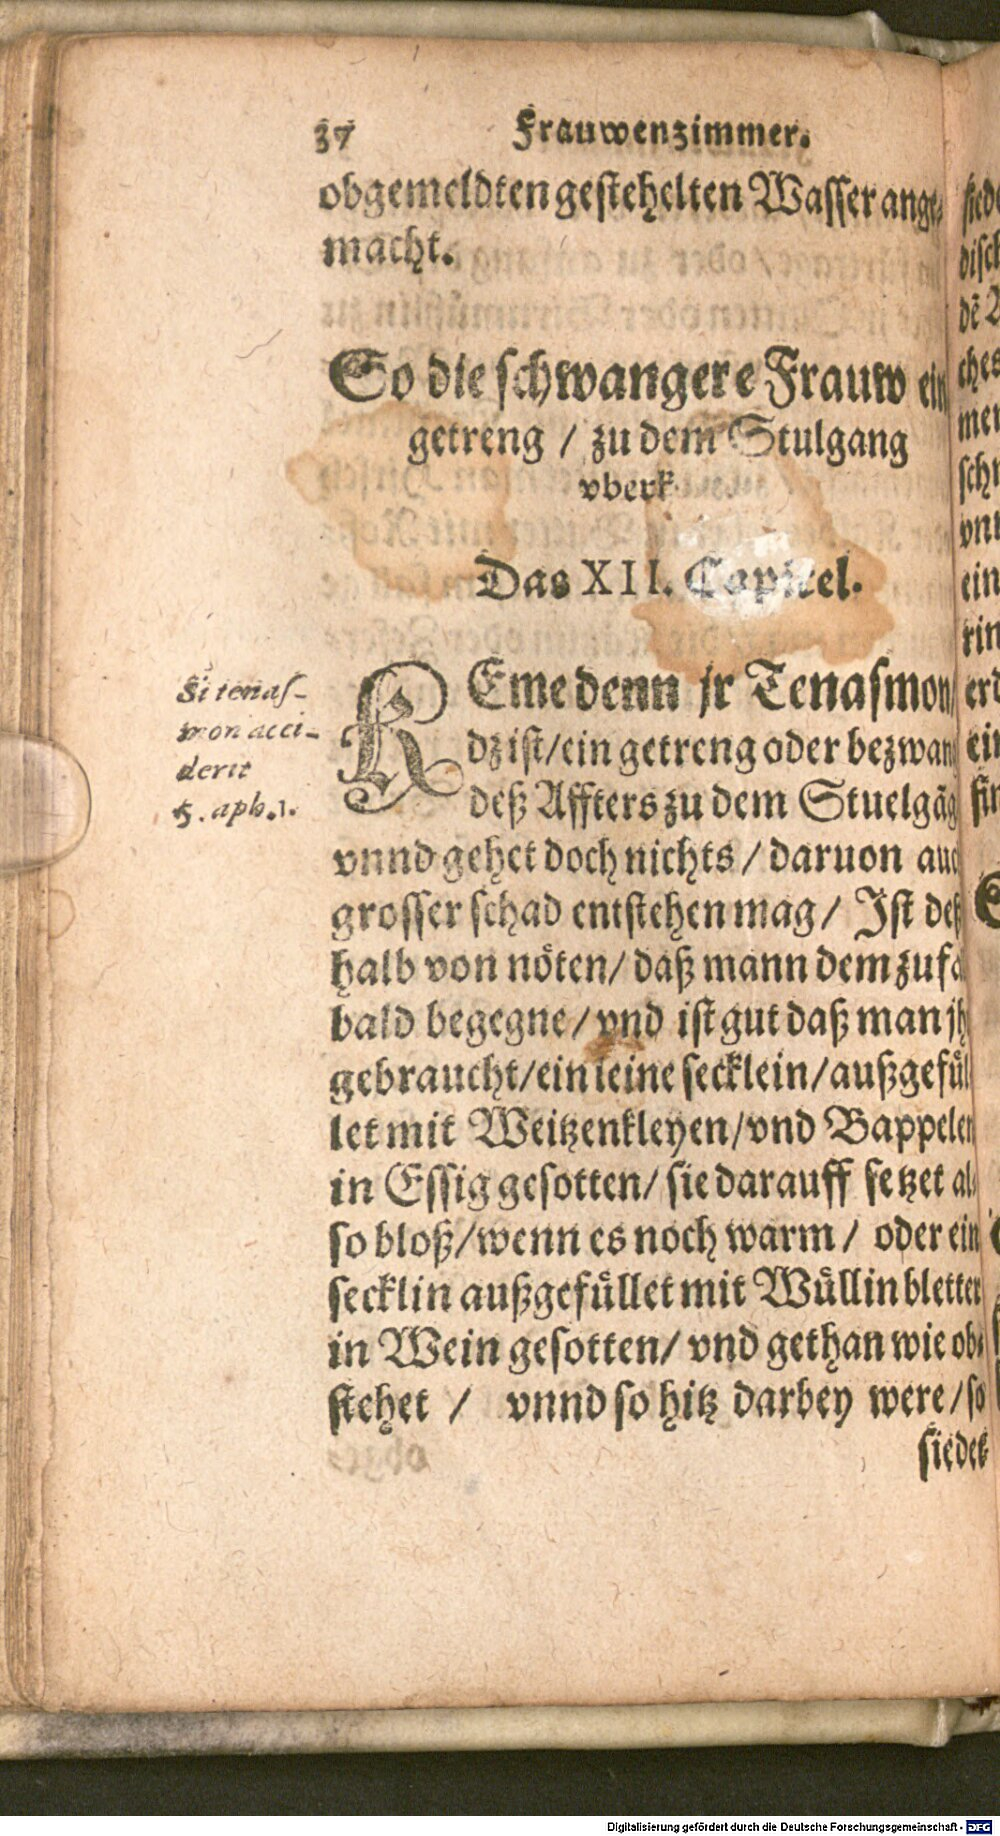 37 Frauwenzimmer.
obgemeldten gestehelten Wasser ange⸗
macht.
So die schwangere Frauw ein
getreng / zu dem Stulgang
vberk
Das XII. Capitel.
Si tenas-
mon acci-
derit
5. aph. 1.
KEme denn jr Tenasmon
dz ist/ein getreng oder bezwan
deß Affters zu dem Stuelgãg
vnnd gehet doch nichts / daruon auc
grosser schad entstehen mag/ Ist deß
halb von nöten/ daß mann dem zufa
bald begegne/vnd ist gut daß man jh
gebraucht/ein leine secklein/außgefül
let mit Weitzenkleyen/vnd Bappelen
in Essig gesotten/ sie darauff setzet al⸗
so bloß/wenn es noch warm / oder ein
secklin außgefüllet mit Wüllin bletter
in Wein gesotten/ vnd gethan wie ob⸗
stehet / vnnd so hitz darbey were/so
siedet
Digitalisierung gefördert durch die Deutsche Forschungsgemeinschaft - DFG